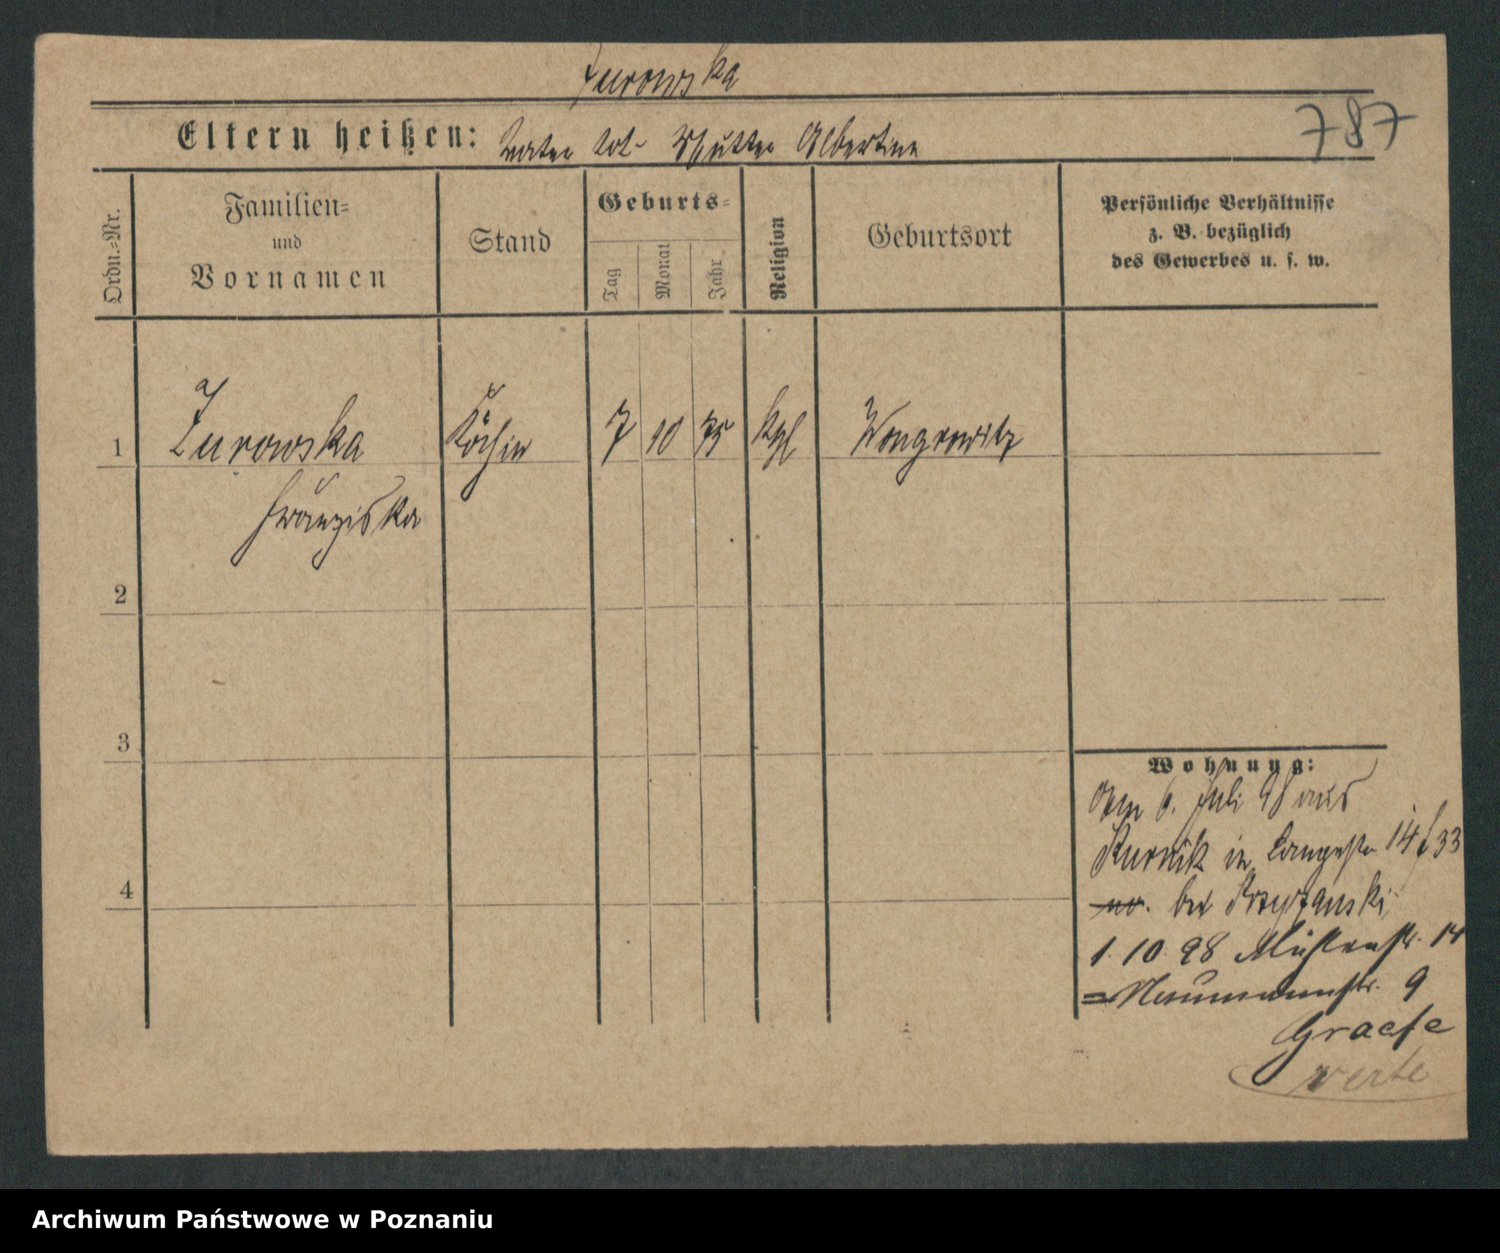 Zurowska
787
Eltern heißen: Vater tot Mutter Albertine
Ordn.=Nr.
Familien=
und
Vornamen
Stand
Geburts=
Tag
Monat
Jahr
Religion
Geburtsort
Persönliche Verhältnisse
z. B. bezüglich
des Gewerbes u. s. w.
1
Zurowska
Franziska
Köchin
7
10
75
kth
Wongrowitz
2
3
4
Wohnung:
Am 6. Juli 98 aus
Kurnik in Langestr 14
bei Krzyzanski
1. 10. 98 Mühlenstr. 14
= Neumannstr. 9
Graefe
verte
Archiwum Państwowe w Poznaniu